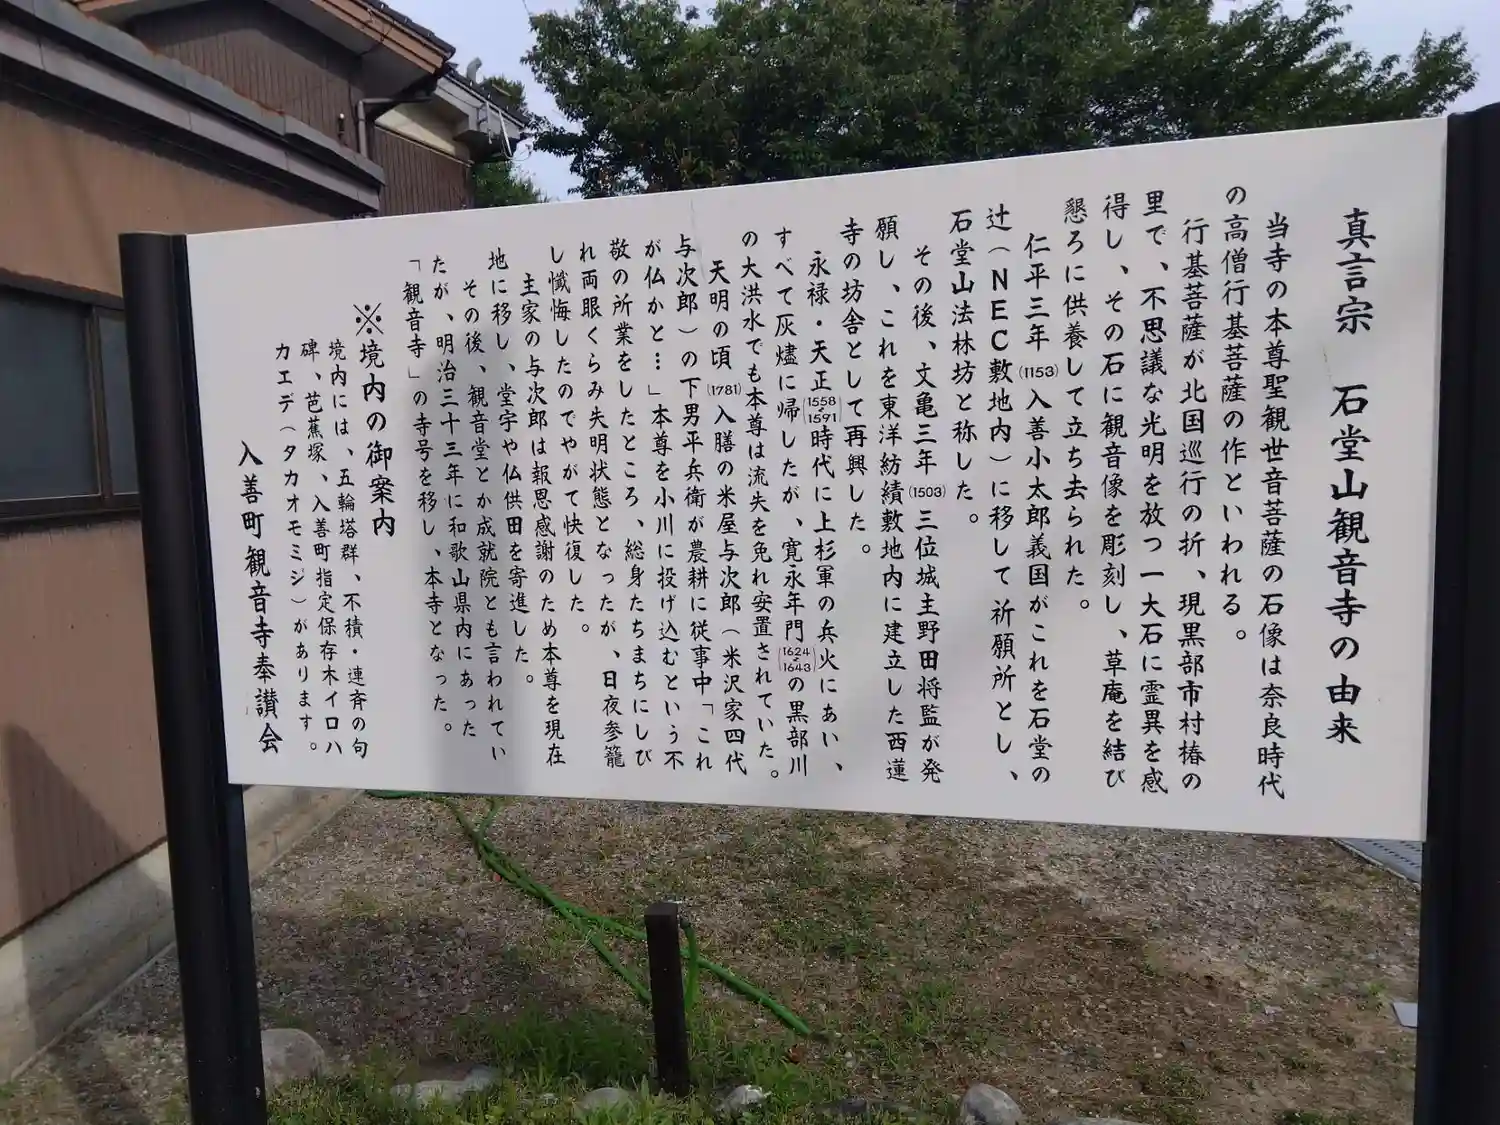 真言宗 石堂山観音寺の由来
当寺の本尊聖観世音菩薩の石像は奈良時代
の高僧行基菩薩の作といわれる。
行基菩薩が北国巡行の折、現黒部市村椿の
里で、不思議な光明を放つ一大石に霊異を感
得し、その石に観音像を彫刻し、草庵を結び
懇ろに供養して立ち去られた。
仁平三年(1153)入善小太郎義国がこれを石堂の
辻(NEC敷地内)に移して祈願所とし、
石堂山法林坊と称した。
その後、文亀三年(1503)三位城主野田将監が発
願し、これを東洋紡績敷地内に建立した西蓮
寺の坊舎として再興した。
永禄・天正(1558〜1591)時代に上杉軍の兵火にあい、
すべて灰燼に帰したが、寛永年門(1624〜1643)の黒部川
の大洪水でも本尊は流失を免れ安置されていた。
天明の頃(1781)入膳の米屋与次郎(米沢家四代
与次郎)の下男平兵衛が農耕に従事中「これ
が仏かと…」本尊を小川に投げ込むという不
敬の所業をしたところ、総身たちまちにしび
れ両眼くらみ失明状態となったが、日夜参籠
し懺悔したのでやがて快復した。
主家の与次郎は報恩感謝のため本尊を現在
地に移し、堂宇や仏供田を寄進した。
その後、観音堂とか成就院とも言われてい
たが、明治三十三年に和歌山県内にあった
「観音寺」の寺号を移し、本寺となった。
※境内の御案内
境内には、五輪塔群、不積・連斉の句
碑、芭蕉塚、入善町指定保存木イロハ
カエデ(タカオモミジ)があります。
入善町観音寺奉讃会